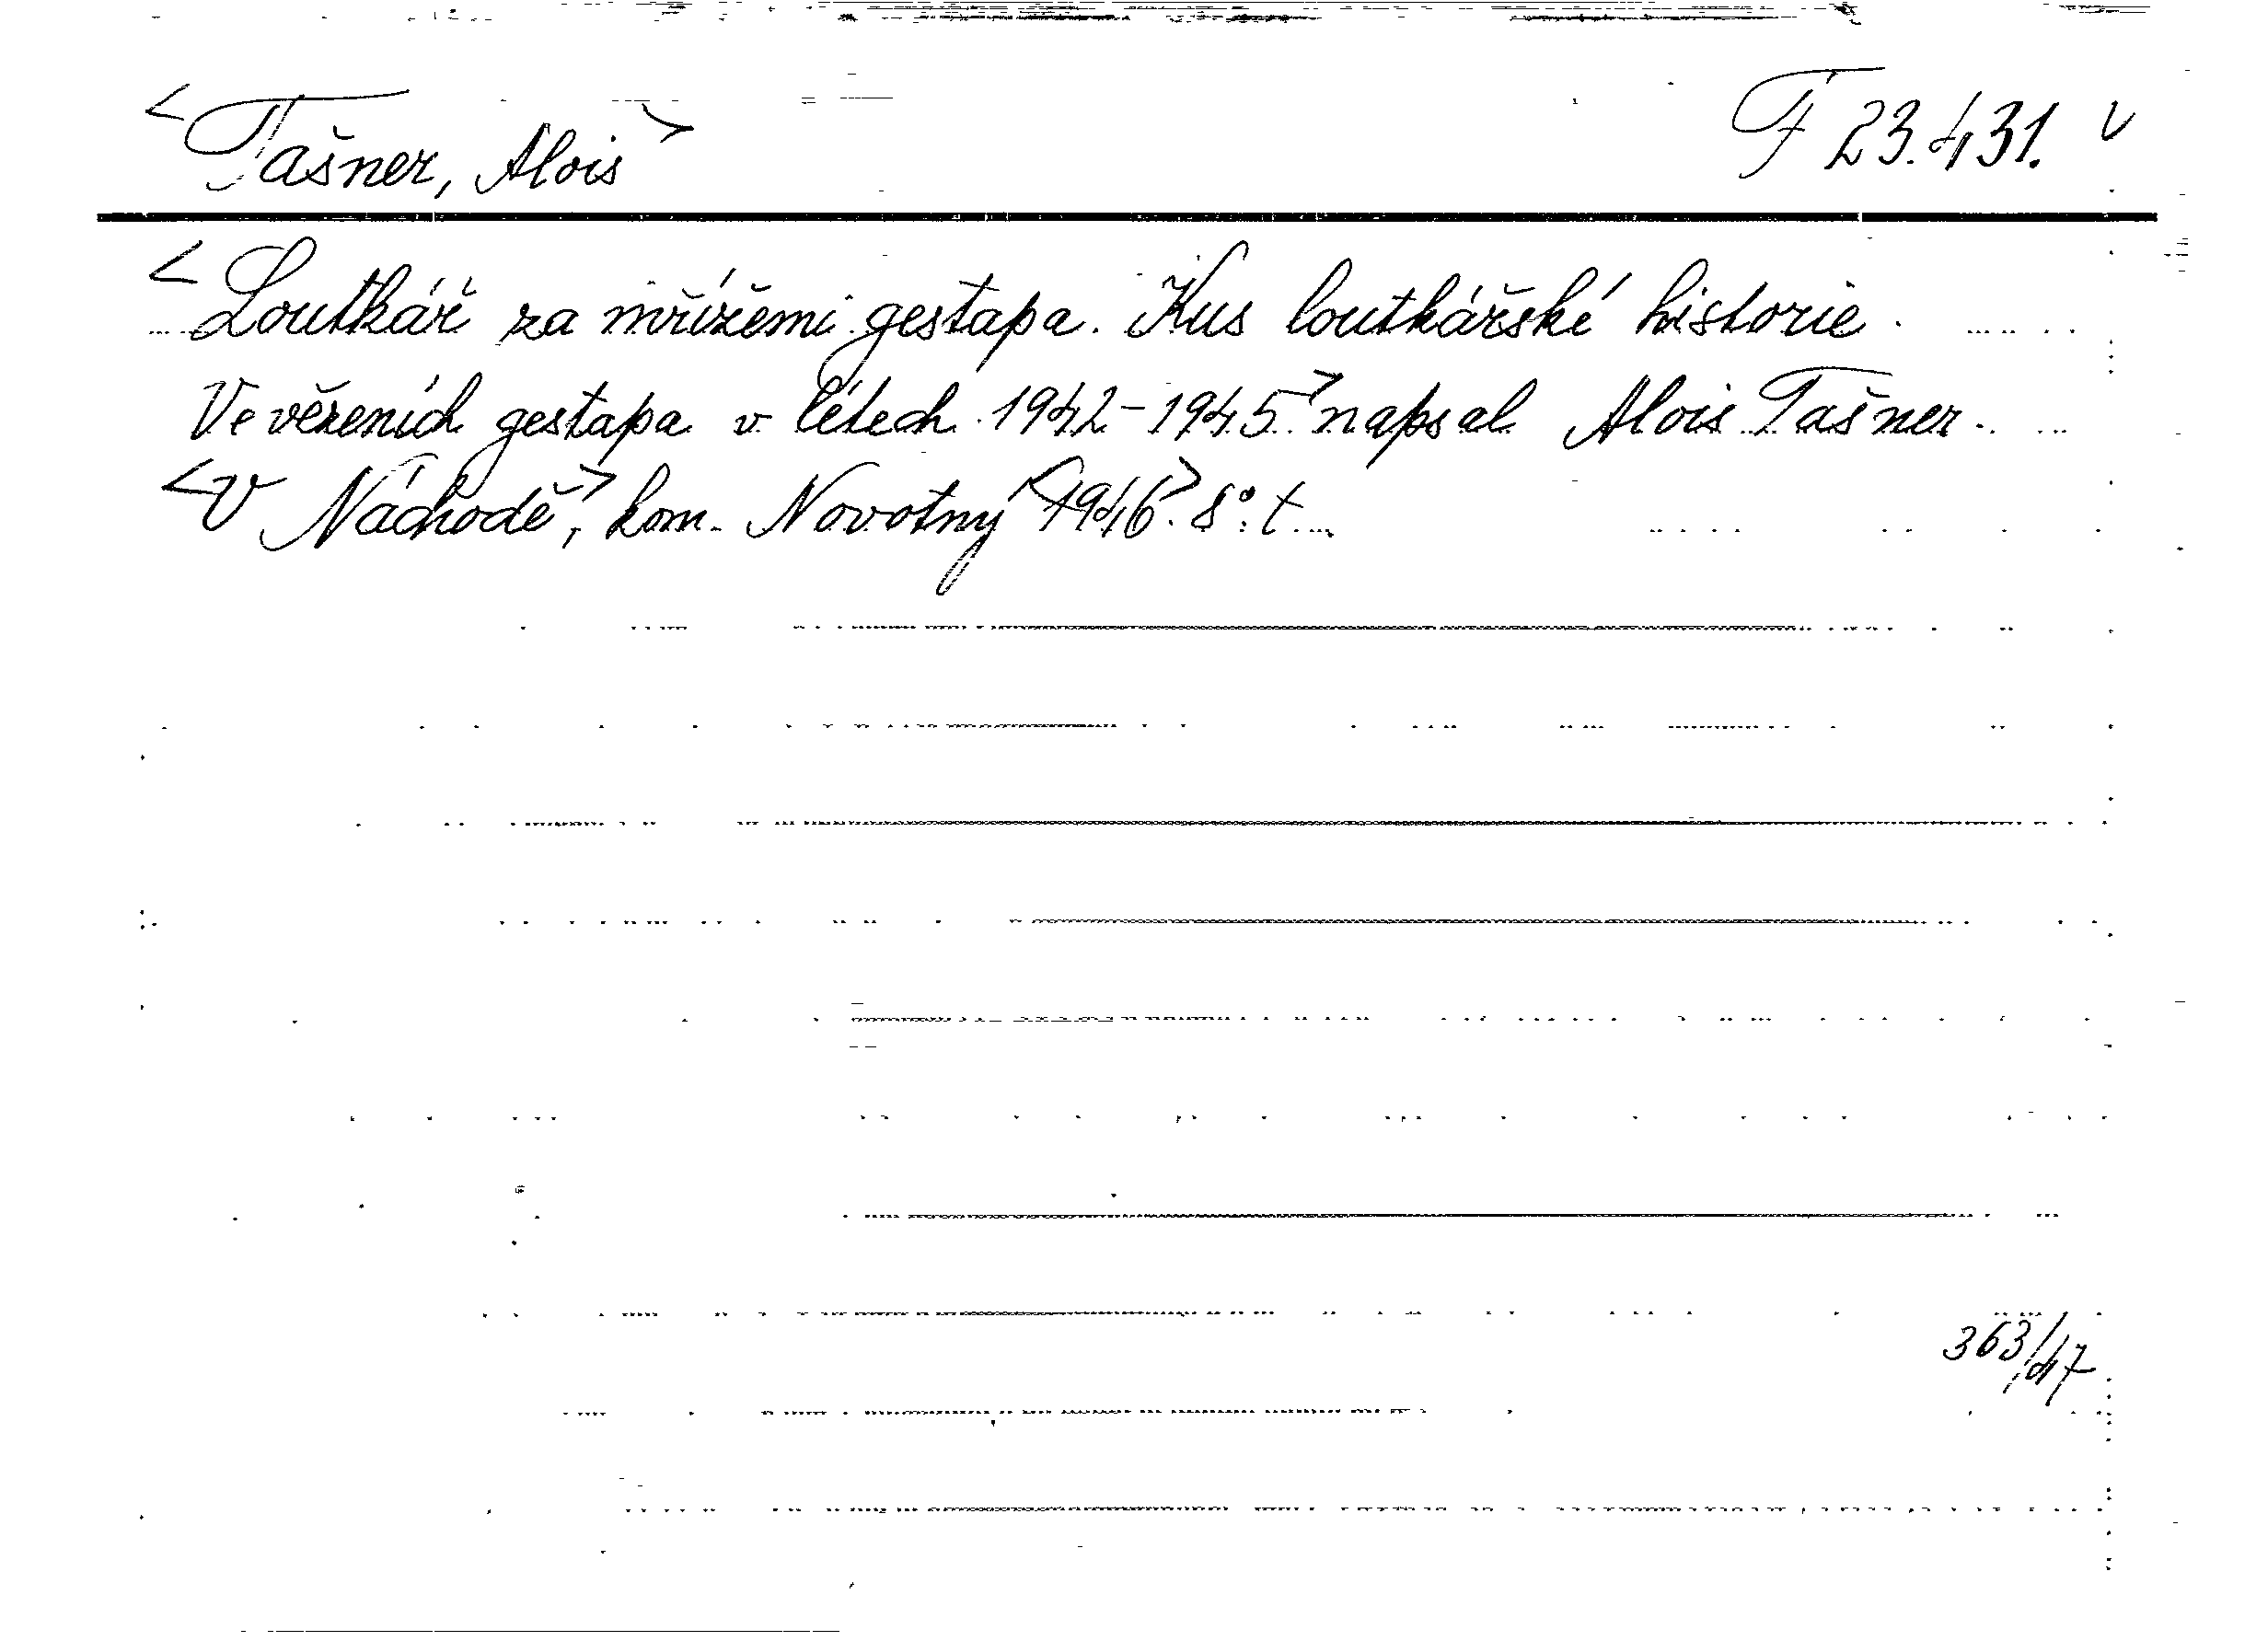 <Tašner, Alois> F 23.431. v
<Loutkář za mřížemi gestapa. Kus loutkářské historie.
Ve vězeních gestapa v létech 1942-1945> napsal Alois Tašner.
<V Náchodě>, kom. Novotný <1946>. 8°. t.
363/47